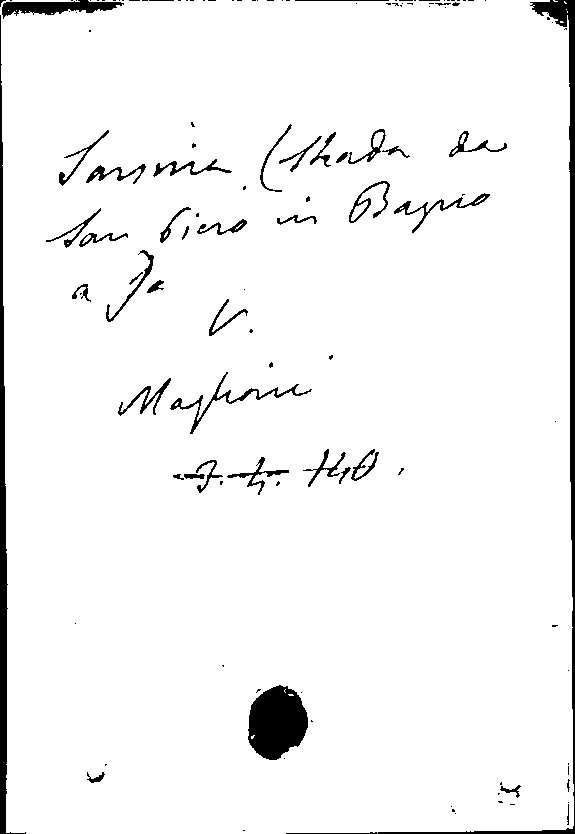 Sarsina (Strada da
San Piero in Bagno
a Sa
V.
Maglioni
3. 4. 140.